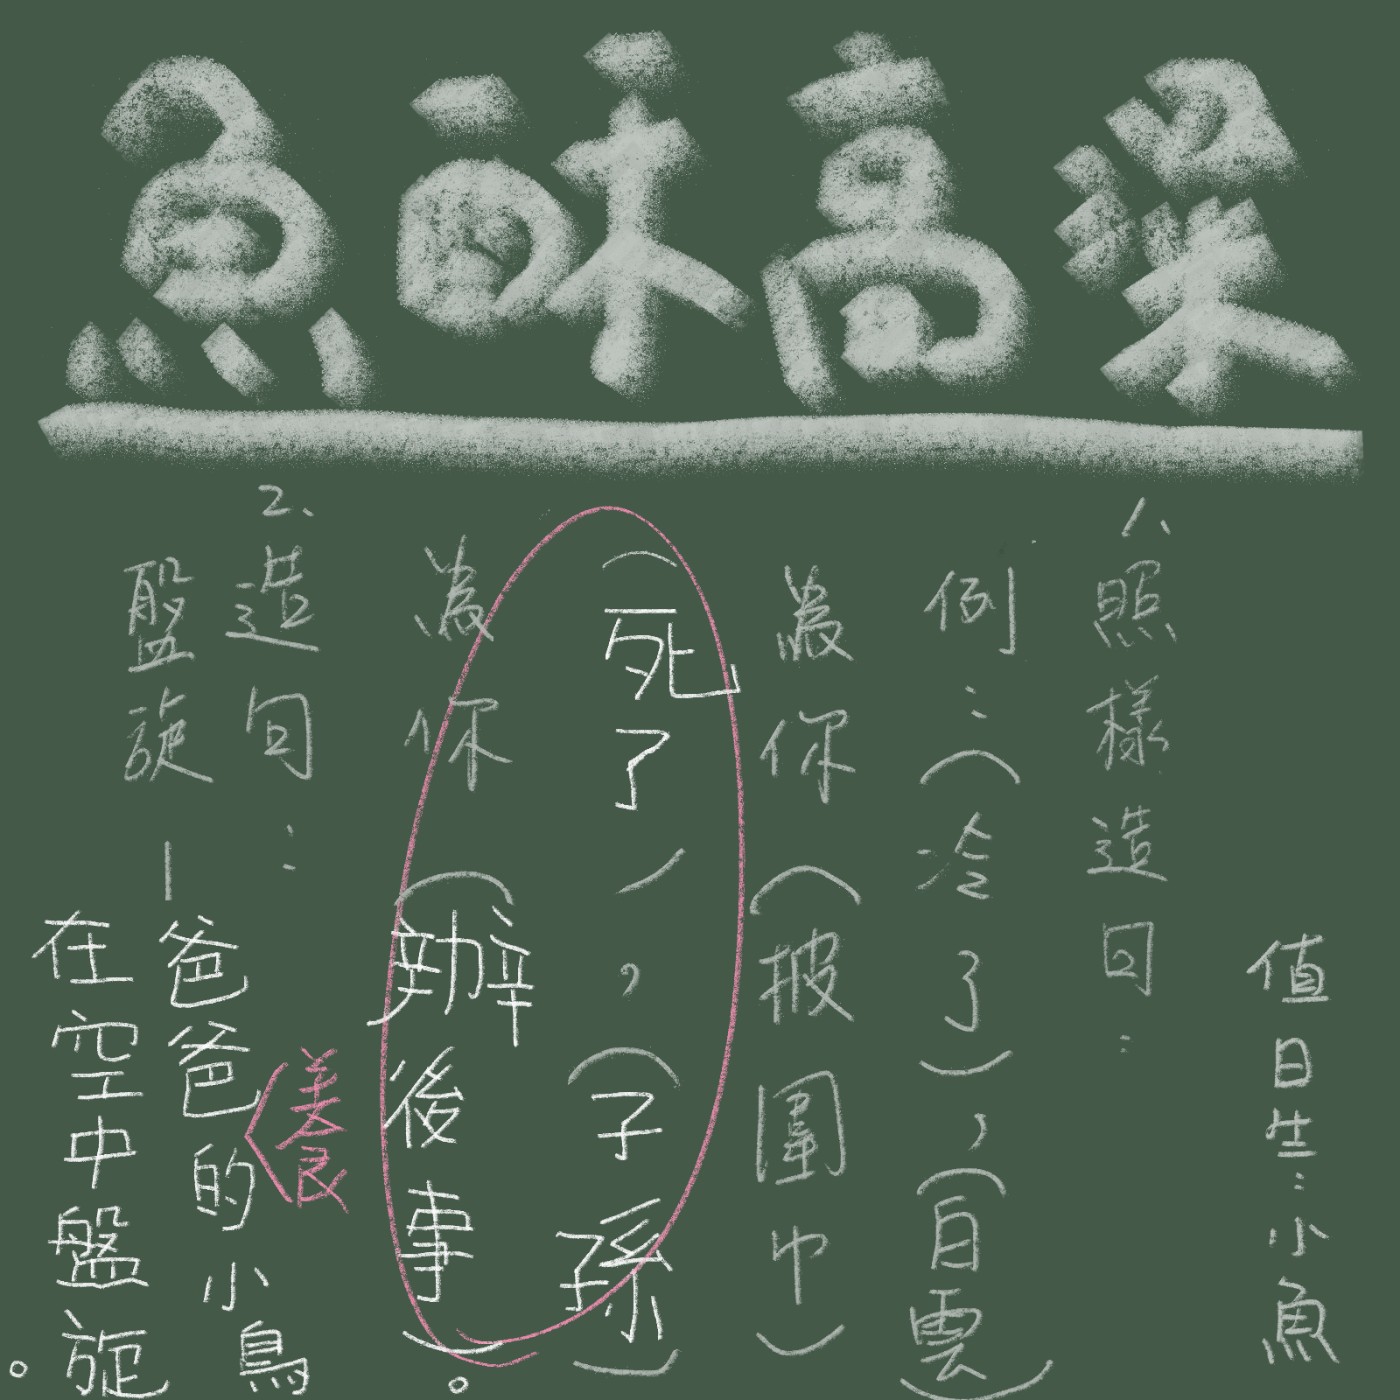 粱高酥魚
值日生：小魚
1、照樣造句：
例：（冷了），（白雲）
為你（披圍巾）
（死了），（子孫）
為你（辦後事）。
2、造句：
盤旋—爸爸的小鳥
養
在空中盤旋。